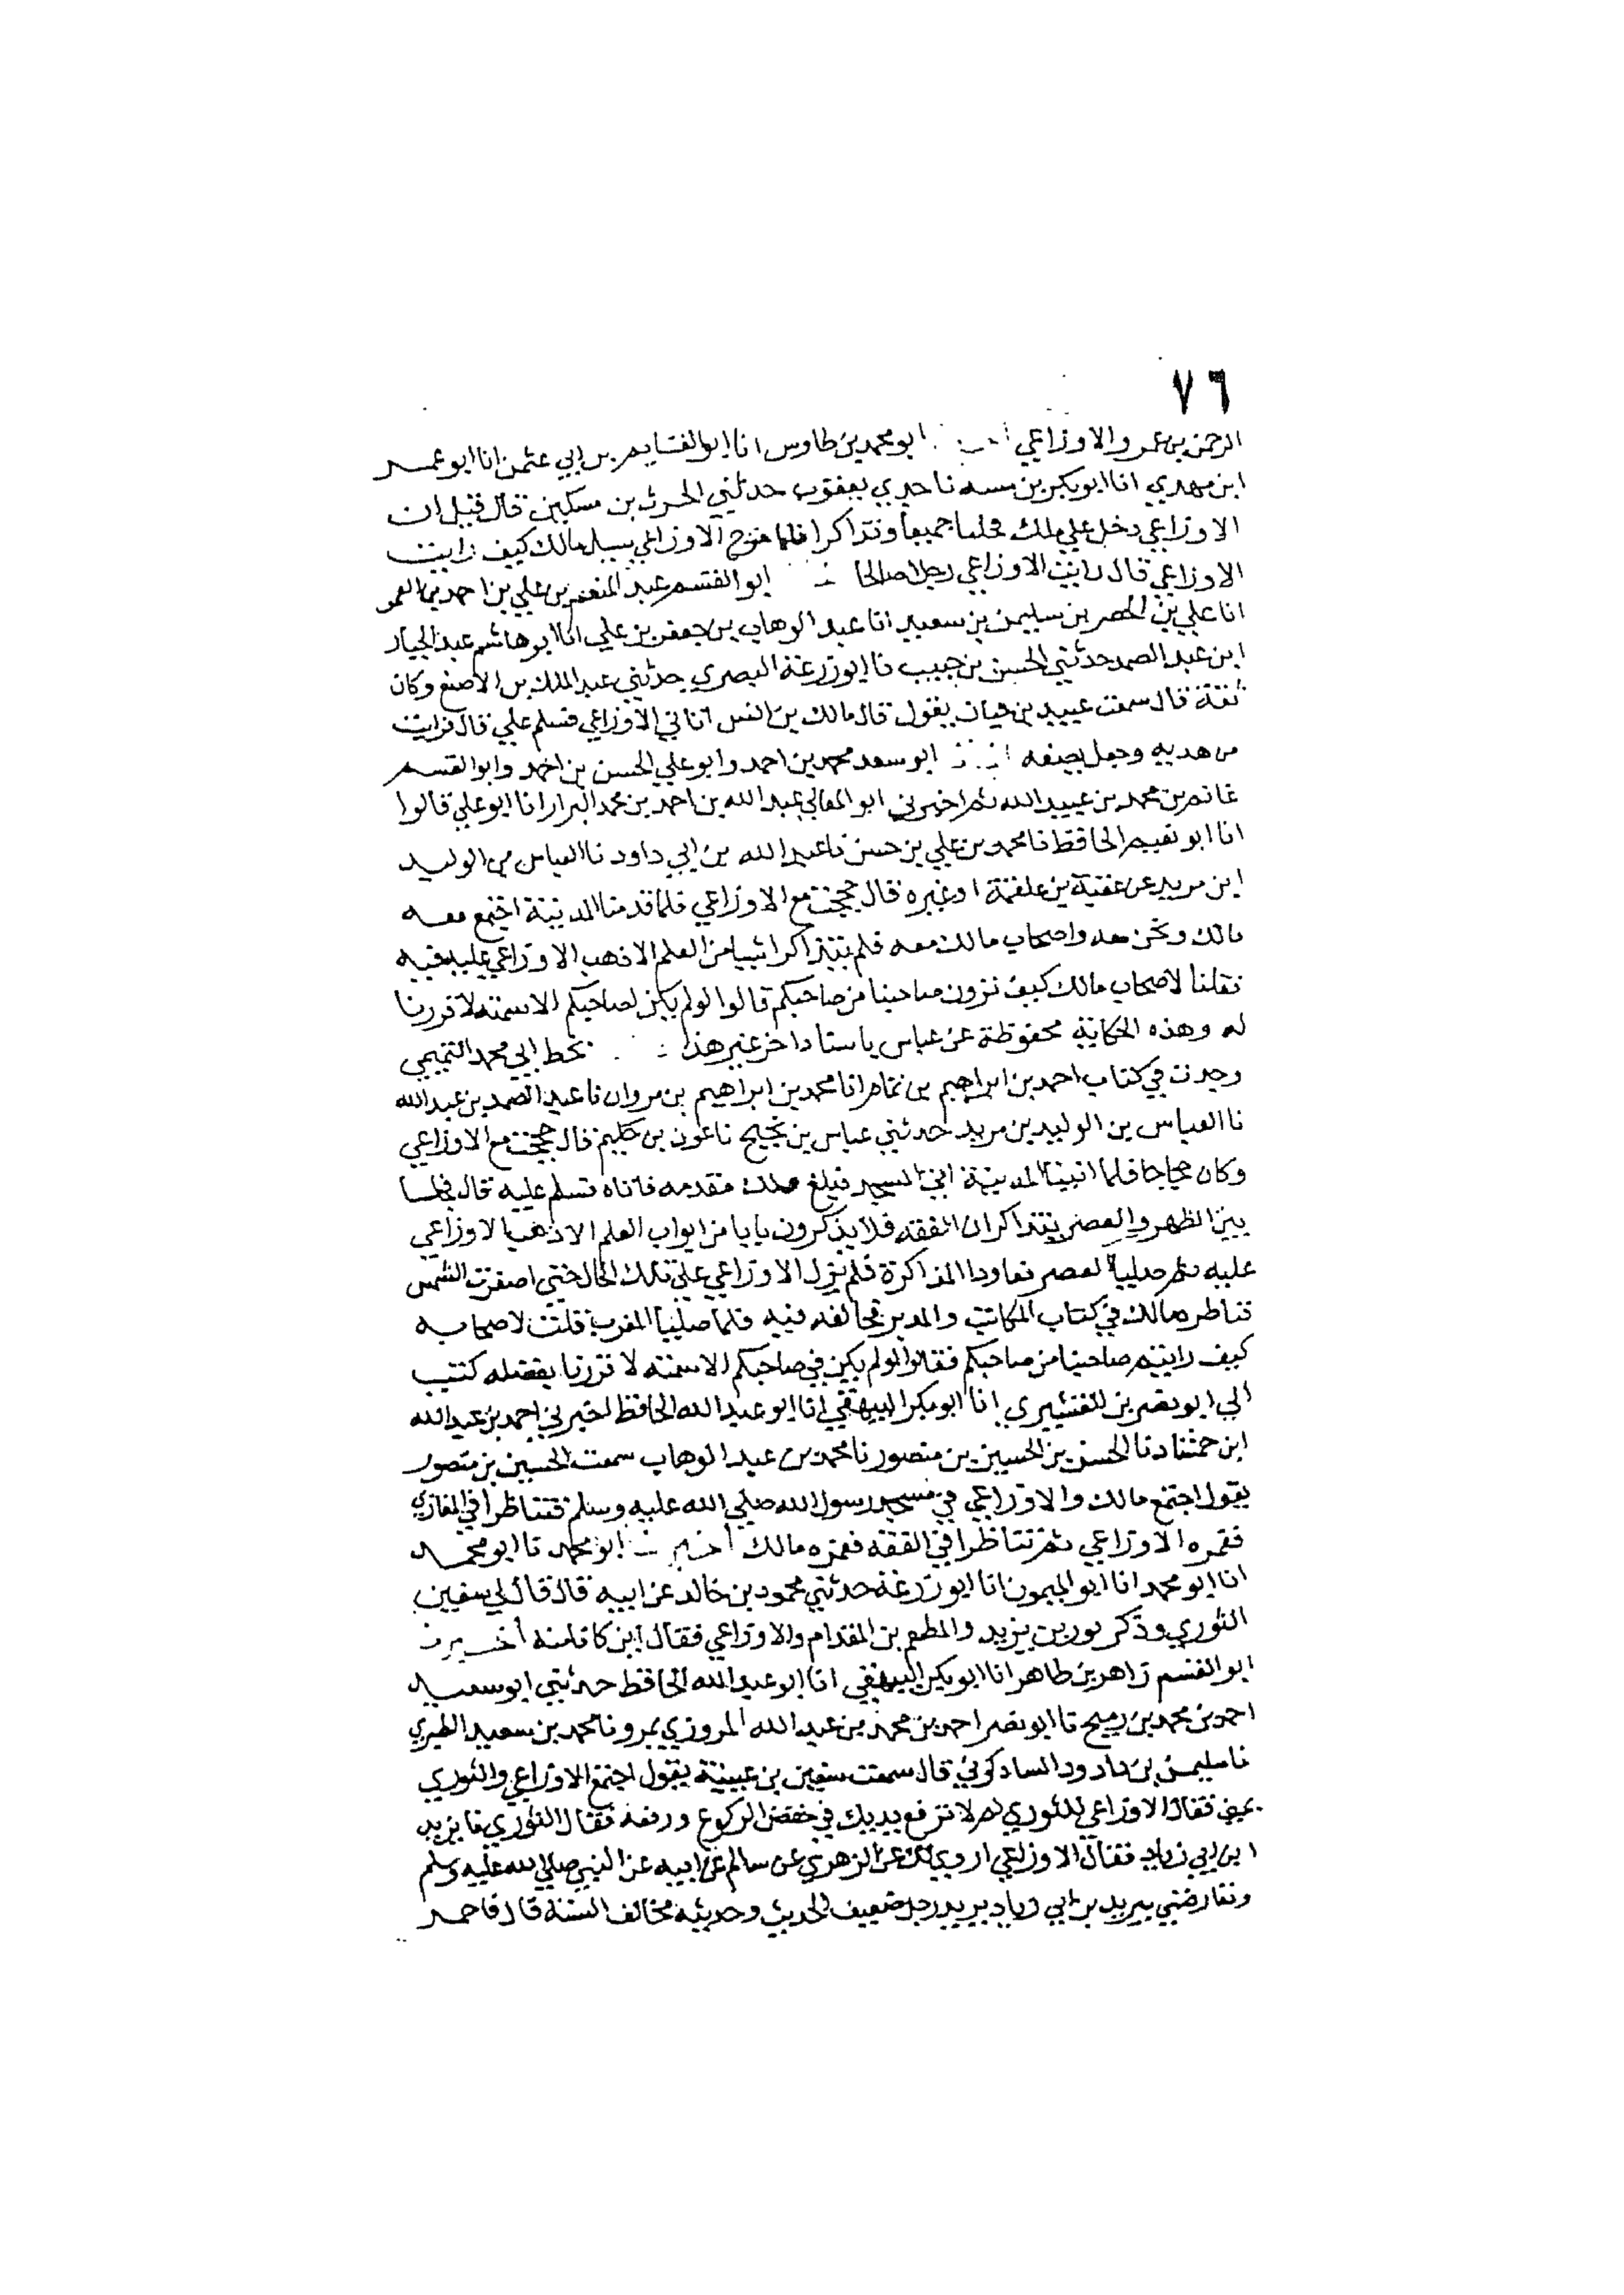 ٧٦
الرحمن بن عمرو الاوزاعي ابو محمد بن طاوس انا ابو الغنايم بن ابي عثمن انا ابو عمر
ابن مهدي انا ابو بكر بن شيبه نا جدي يعقوب حدثني الحرث بن مسكين قال قيل ان
الاوزاعي دخل علي ملك فجلسا جميعا وتذاكرا فلما خرج الاوزاعي سيل مالك كيف رايت
الاوزاعي قال رايت الاوزاعي رجلا صالحا ابو القسم عبد المنعم بن علي بن احمد بن الغمر
انا علي بن الخضر بن سليمن بن سعيد انا عبد الوهاب بن جعفر بن علي انا ابو هاشم عبد الجبار
ابن عبد الصمد حدثني الحسن بن حبيب نا ابو زرعة البصري حدثني عبد الملك بن الاصبغ وكان
ثقة قال سمعت عبيد بن حيان يقول قال مالك بن انس اتاني الاوزاعي فسلم علي قال فرايت
من هديه وجعل يصفه ابو سعد محمد بن احمد وابو علي الحسن بن احمد وابو القسم
غانم بن محمد بن عبيد الله ثم اخبرني ابو المعالي عبد الله بن احمد بن محمد البزار انا ابو علي قالوا
انا ابو نعيم الحافظ نا محمد بن علي بن حسن نا عبد الله بن ابي داود نا العباس بن الوليد
ابن مزيد عن عقبة بن علقمة او غيره قال حججت مع الاوزاعي فلما قدمنا المدينة اجتمع معه
مالك ونحن معه واصحاب مالك معه فلم يتذاكرا شيا من العلم الا ذهب الاوزاعي عليه فيه
فقلنا لاصحاب مالك كيف ترون صاحبنا من صاحبكم قالوا لو لم يكن لصاحبكم الا سمته لاقررنا
له وهذه الحكاية محفوظة عن عباس باسناد اخر غير هذا بخط ابي محمد التميمي
وجدت في كتاب احمد بن ابراهيم بن تمام انا محمد بن ابراهيم بن مروان نا عبد الصمد بن عبد الله
نا العباس بن الوليد بن مزيد حدثني عباس بن نجيح نا عون بن حكيم قال حججت مع الاوزاعي
وكان حجاجا فلما اتينا المدينة اتي المسجد فبلغ ملك مقدمه فاتاه فسلم عليه قال فجلسا
بين الظهر والعصر يتذاكران الفقه فلا يذكرون بابا من ابواب العلم الا ذهب الاوزاعي
عليه ثم صليا العصر فعاودا المذاكرة فلم يزل الاوزاعي علي تلك الحال حتي اصفرت الشمس
فناظره مالك في كتاب المكاتب والمدبر فخالفه فيه فلما صلينا المغرب قلت لاصحابه
كيف رايتم صاحبنا من صاحبكم فقالوا لو لم يكن في صاحبكم الا سمته لاقررنا بفضله كتب
الي ابو نصر بن القشيري انا ابو بكر البيهقي انا ابو عبد الله الحافظ اخبرني احمد بن عبد الله
ابن حمشاد نا الحسن بن الحسين بن منصور نا محمد بن عبد الوهاب سمعت الحسين بن منصور
يقول اجتمع مالك والاوزاعي في مسجد رسول الله صلي الله عليه وسلم فتناظرا في المغازي
فقمره الاوزاعي ثم تناظرا في الفقه فقمره مالك ابو محمد نا ابو محمد
انا ابو محمد انا ابو الميمون انا ابو زرعة حدثني محمود بن خالد عن ابيه قال قال لي سفين
الثوري وذكر ثور بن يزيد والمطعم بن المقدام والاوزاعي فقال اين كانا منه
ابو القسم زاهر بن طاهر انا ابو بكر البيهقي انا ابو عبد الله الحافظ حدثني ابو سعيد
احمد بن محمد بن رميح نا ابو نصر احمد بن محمد بن عبد الله المروزي بمرو نا محمد بن سعيد الطبري
نا سليمن بن داود الشاذكوني قال سمعت سفين بن عيينة يقول اجتمع الاوزاعي والثوري
بمني فقال الاوزاعي للثوري لم لا ترفع يديك في خفض الركوع ورفعه فقال الثوري نا يزيد
ابن ابي زياد فقال الاوزاعي اروي لك عن الزهري عن سالم عن ابيه عن النبي صلي الله عليه وسلم
وتعارضني بيزيد بن ابي زياد يزيد رجل ضعيف الحديث وحديثه مخالف السنة قال فاحمر